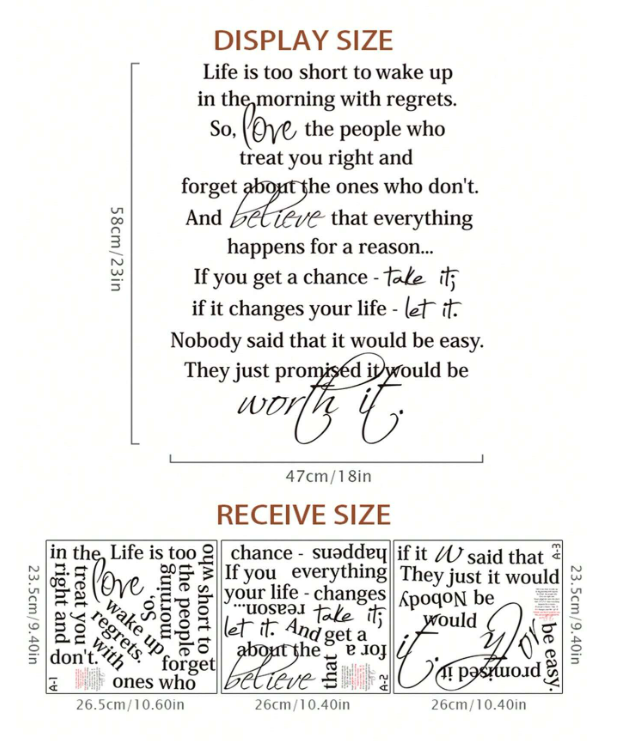 DISPLAY SIZE
Life is too short to wake up
in the morning with regrets.
So, love the people who
treat you right and
forget about the ones who don't.
And believe that everything
happens for a reason...
If you get a chance - take it;
if it changes your life - let it.
Nobody said that it would be easy.
They just promised it would be
worth it.
58cm/23in
47cm/18in
RECEIVE SIZE
in the Life is too
who
short to
the people
morning
treat you
right and
love
So,
wake up
regrets.
with
don't.
forget
ones who
A-1
chance - happens
If you everything
your life - changes
reason...
take it;
let it. And get a
about the for a
believe that
A-2
if it W said that
They just it would
Nobody be
would
it. h
or
be easy.
promised it
A-3
23.5cm/9.40in
26.5cm/10.60in
26cm/10.40in
26cm/10.40in
23.5cm/9.40in